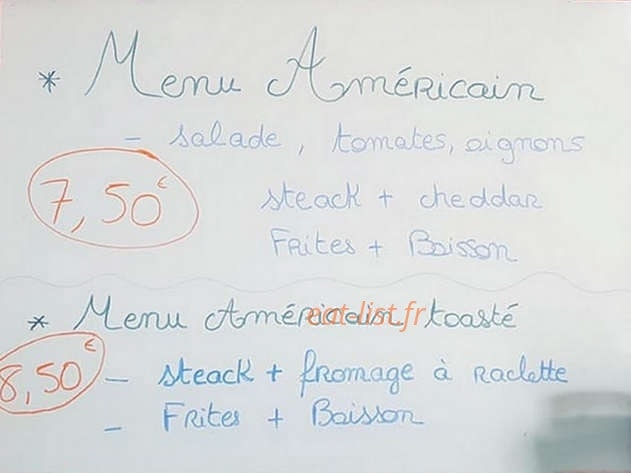 * Menu Américain
- salade, tomates, oignons
7,50€
steack + cheddar
Frites + Boisson
* Menu Américain toasté
eat-list.fr
8,50€
- steack + fromage à raclette
- Frites + Boisson